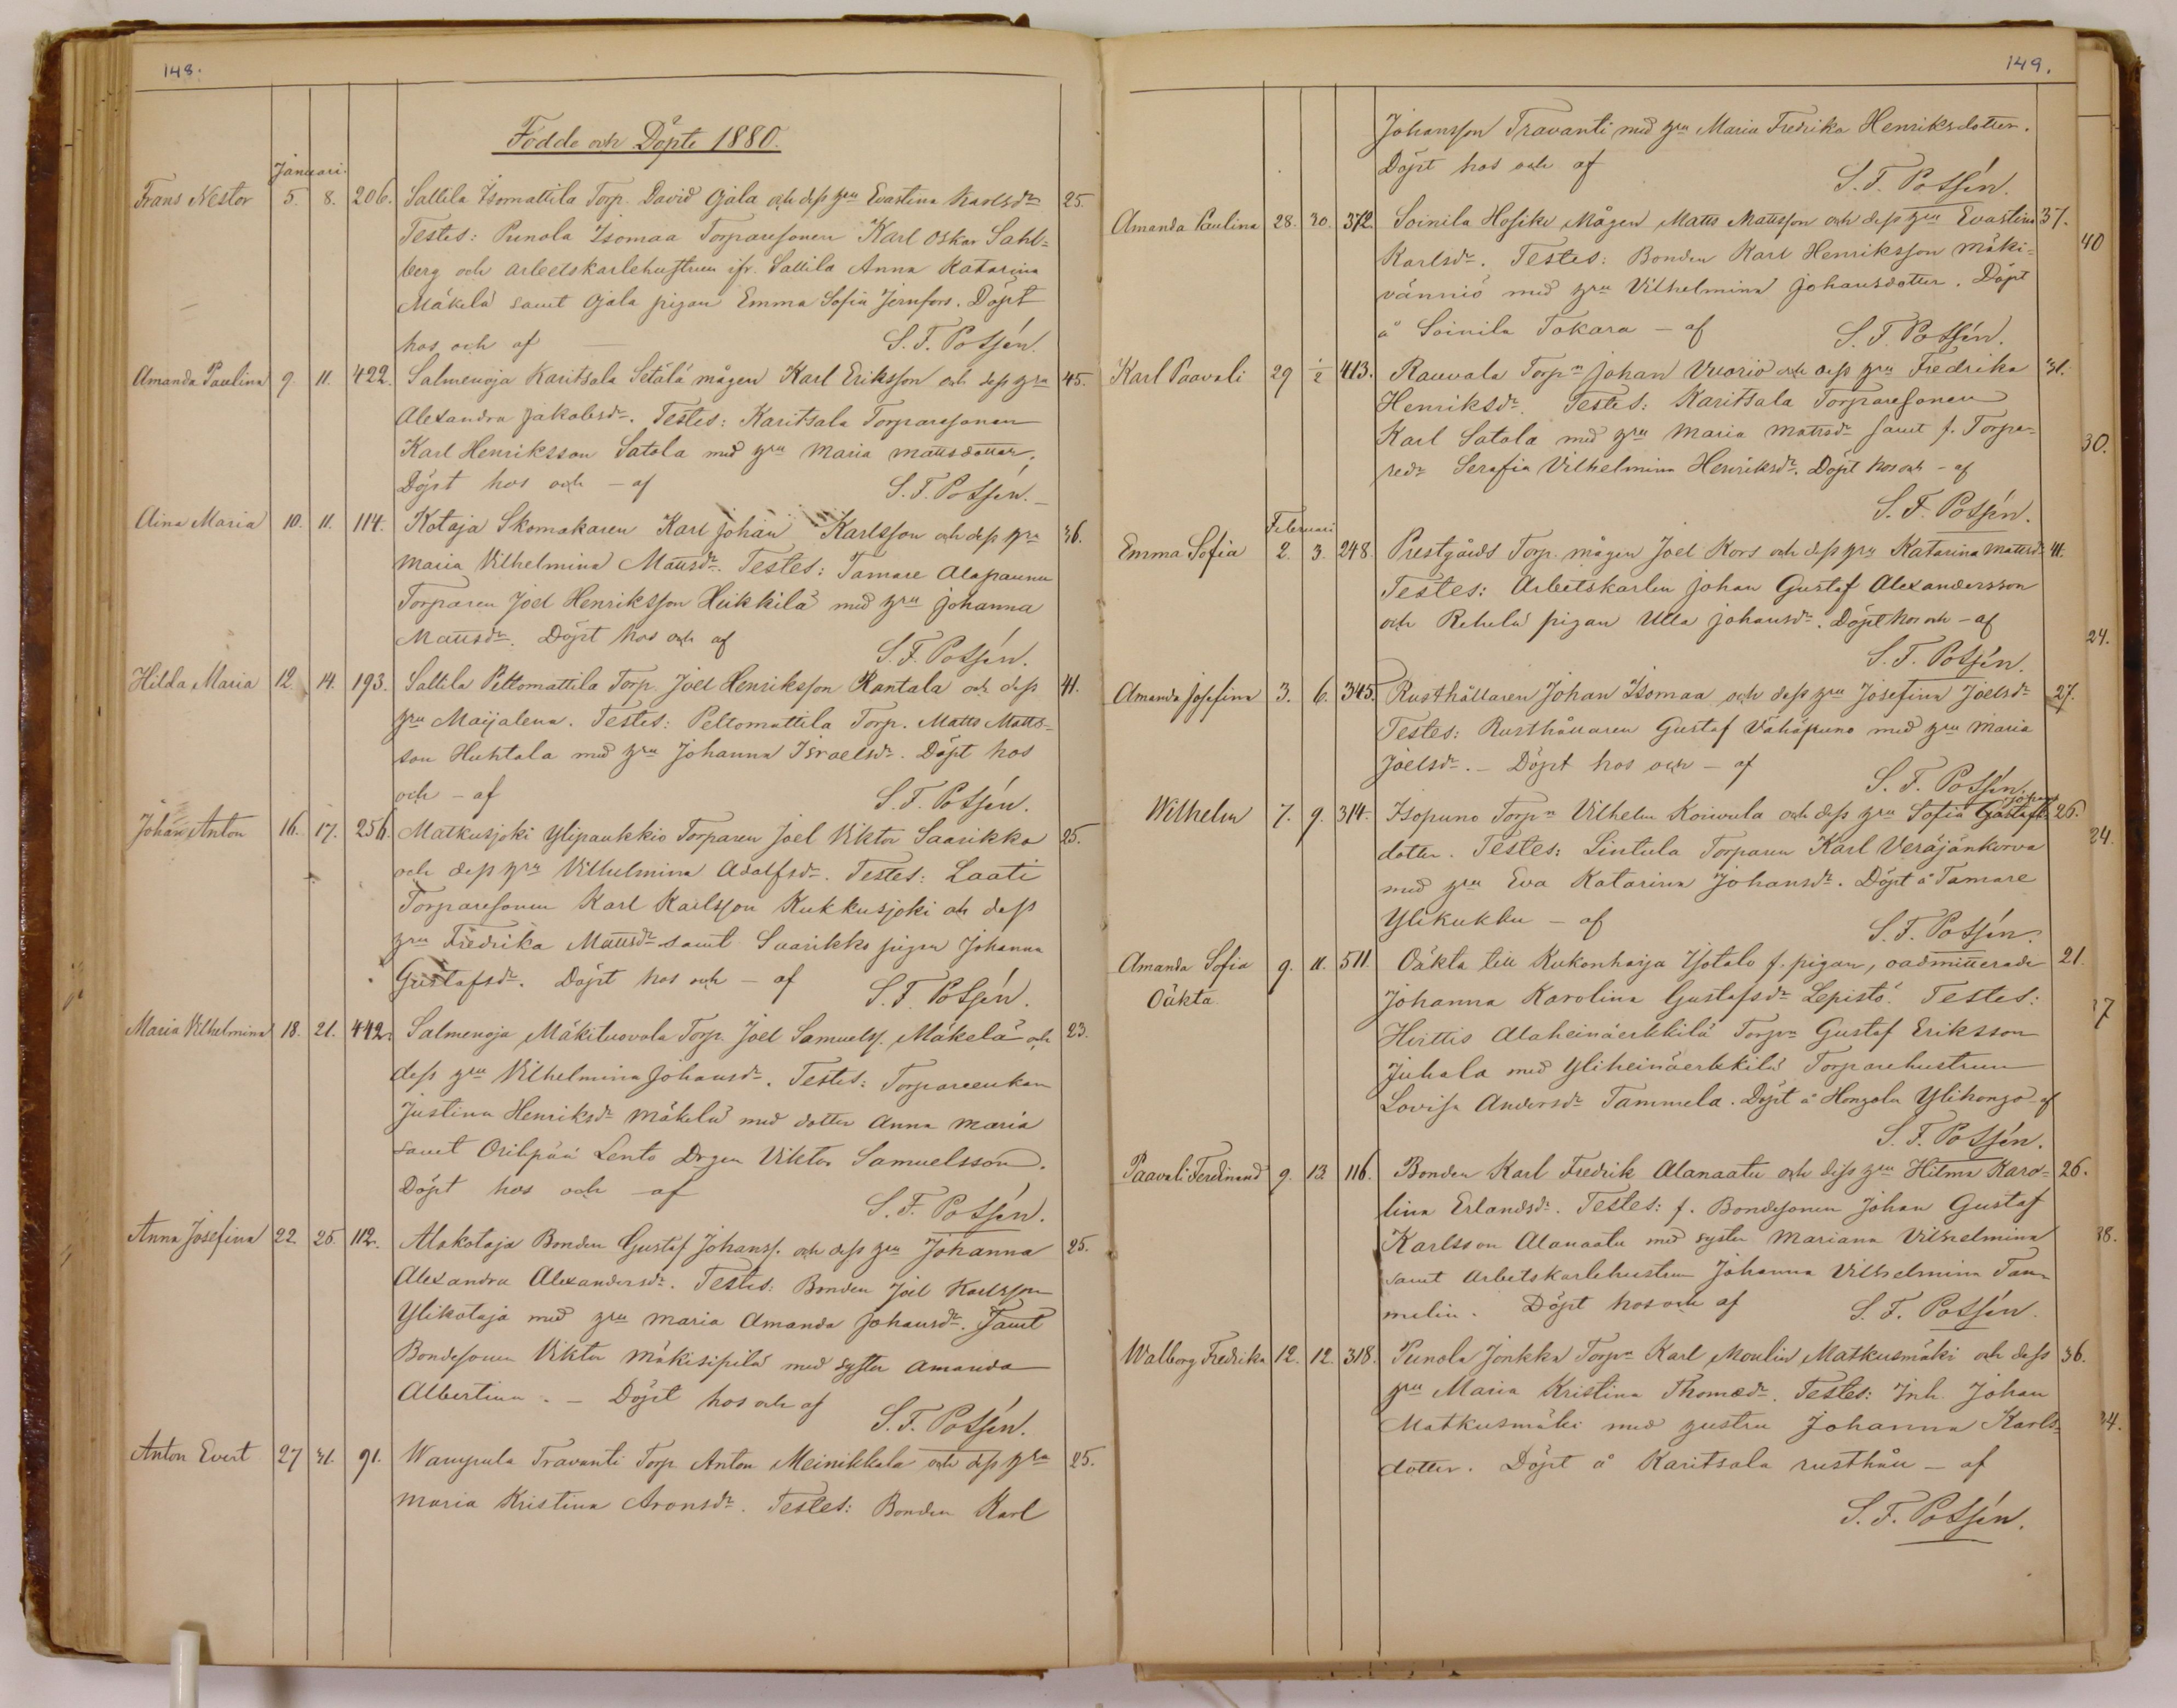 148.
Födde och Döpte 1880.
Januari.
Frans Nestor 5. 8. 206. Sallila Isomattila Torp. David Ojala och dess hru Evastina Karlsdr 25.
Testes: Punola Isomaa Torparesonen Karl Oskar Sahl=
berg och arbetskarlehustrun ifr. Sallila Anna Katarina
Mäkelä samt Ojala pigan Emma Sofia Jernfors. Döpt
hos och af S. F. Potsén.
Amanda Paulina 9. 11. 422. Salmenoja Karitsala Setälä mågen Karl Eriksson och dess hru 45.
Alexandra Jakobsdr. Testes: Karitsala Torparesonen
Karl Henriksson Satola med hru Maria Mattsdotter.
Döpt hos och - af S. F. Potsén.
Aina Maria 10. 11. 114. Kotaja Skomakaren Karl Johan Karlsson och dess hru 36.
Maria Vilhelmina Mattsdr. Testes: Tamare Alapaunu
Torparen Joel Henriksson Heikkilä med hru Johanna
Mattsdr. Döpt hos och af S. F. Potsén.
Hilda Maria 12. 14. 193. Sallila Peltomattila Torp. Joel Henriksson Rantala och dess 41.
hru Maijalena. Testes: Peltomattila Torp. Matts Matts=
son Huhtala med hru Johanna Israelsdr. Döpt hos
och - af S. F. Potsén.
Johan Anton 16. 17. 256. Matkusjoki Ylipaukkio Torparen Joel Viktor Saarikko 25.
och dess hru Vilhelmina Adolfsdr. Testes: Laati
Torparesonen Karl Karlsson Kukkusjoki och dess
hru Fredrika Mattsdr samt Saarikko pigan Johanna
Gustafsdr. Döpt hos och - af S. F. Potsén.
Maria Vilhelmina 18. 21. 442. Salmenoja Mäkituovola Torp. Joel Samuelss. Mäkelä och 23.
dess hru Vilhelmina Johansdr. Testes: Torpareenkan
Justina Henriksdr Mäkelä med dotter Anna Maria
samt Oripää Lento Drgen Viktor Samuelsson.
Döpt hos och af S. F. Potsén.
Anna Josefina 22 25. 112. Alakotaja Bonden Gustaf Johanss. och dess hru Johanna 25.
Alexandra Alexandersdr. Testes: Bonden Joel Karlsson
Ylikotaja med hru Maria Amanda Johansdr. Samt
Bondesonen Viktor Mäkisipilä med syster Amanda
Albertina. - Döpt hos och af S. F. Potsén.
Anton Evert 27 31. 91. Wampula Travanti Torp. Anton Meinikkala och dess hru 25.
Maria Kristina Aronsdr. Testes: Bonden Karl
149.
Johansson Travanti med hru Maria Fredrika Henriksdotter.
Döpt hos och af S. F. Potsén.
Amanda Paulina 28. 30. 372. Soinila Hosike Mågen Matts Mattsson och dess hru Evastina 37.
Karlsdr. Testes: Bonden Karl Henriksson Mäki=
vänniö med hru Vilhelmina Johansdotter. Döpt
å Soinila Tokara - af S. F. Potsén.
Karl Paavali 29 1/2 413. Rauvala Torpn Johan Vuorio och dess hru Fredrika 31.
Henriksdr. Testes: Karitsala Torparesonen
Karl Satola med hru Maria Mattsdr samt f. Torpa=
redr Serafia Vilhelmina Henriksdr. Döpt hos och - af
S. F. Potsén.
Februari
Emma Sofia 2. 3. 248. Prestgårds Torp. mågen Joel Kors och dess hru Katarina Mattsdr 41.
Testes: Arbetskarlen Johan Gustaf Alexandersson
och Rekelä pigan Ulla Johansdr. Döpt hos och - af
S. F. Potsén.
Amanda Josefina 3. 6. 345. Rusthållaren Johan Isomaa och dess hru Josefina Joelsdr 27.
Testes: Rusthållaren Gustaf Vähäpuno med hru Maria
Joelsdr. - Döpt hos och - af S. F. Potsén.
Wilhelm 7. 9. 314. Isopuno Torpn Vilhelm Koivula och dess hru Sofia Gustafs 26.
dotter. Testes: Lintula Torparen Karl Veräjänkorva
med hru Eva Katarina Johansdr. Döpt å Tamare
Ylikukku - af S. F. Potsén.
Amanda Sofia 9. 11. 511. Oäkta till Kukonharja Isotalo f. pigan, oadmitterade 21.
Oäkta
Johanna Karolina Gustafsdr Lepistö. Testes:
Hirttis Alaheinäerkkilä Torpn Gustaf Eriksson
Juhala med Yliheinäerkkilä Torparehustrun
Lovisa Andersdr Tammela. Döpt å Hongola Ylihongo - af
S. F. Potsén.
Paavali Ferdinand 9. 13 116. Bonden Karl Fredrik Alanaatu och dess hru Hilma Karo= 26.
lina Erlandsdr. Testes: f. Bondesonen Johan Gustaf
Karlsson Alanaatu med syster Mariana Vilhelmina
samt Arbetskarlehustrun Johanna Vilhelmina Tam=
melin. Döpt hos och af S. F. Potsén.
Walborg Fredrika 12. 12. 318. Punola Jonkka Torpn Karl Moulin Matkusmäki och dess 36.
hru Maria Kristina Thomædr. Testes: Inh. Johan
Matkusmäki med hustru Johanna Karls=
dotter. Döpt å Karitsala rusthåll - af
S. F. Potsén.
40
30.
24.
24.
37
38.
34.